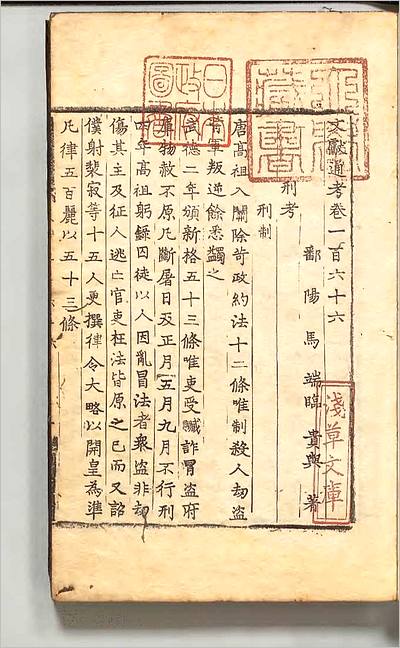 文獻通考卷一百六十六
鄱陽馬端臨貴與著
刑考
刑制
唐高祖入關除苛政約法十二條唯制殺人劫盜
背軍叛逆餘悉蠲之
武德二年頒新格五十三條唯吏受贓詐冒盜府
庫物赦不原凡斷屠日及正月五月九月不行刑
四年高祖躬錄囚徒以人因亂冒法者衆盜非劫
傷其主及征人逃亡官吏枉法皆原之已而又詔
僕射裴寂等十五人更撰律令大略以開皇為準
凡律五百麗以五十三條
淺草文庫
日本政府圖書
林氏藏書